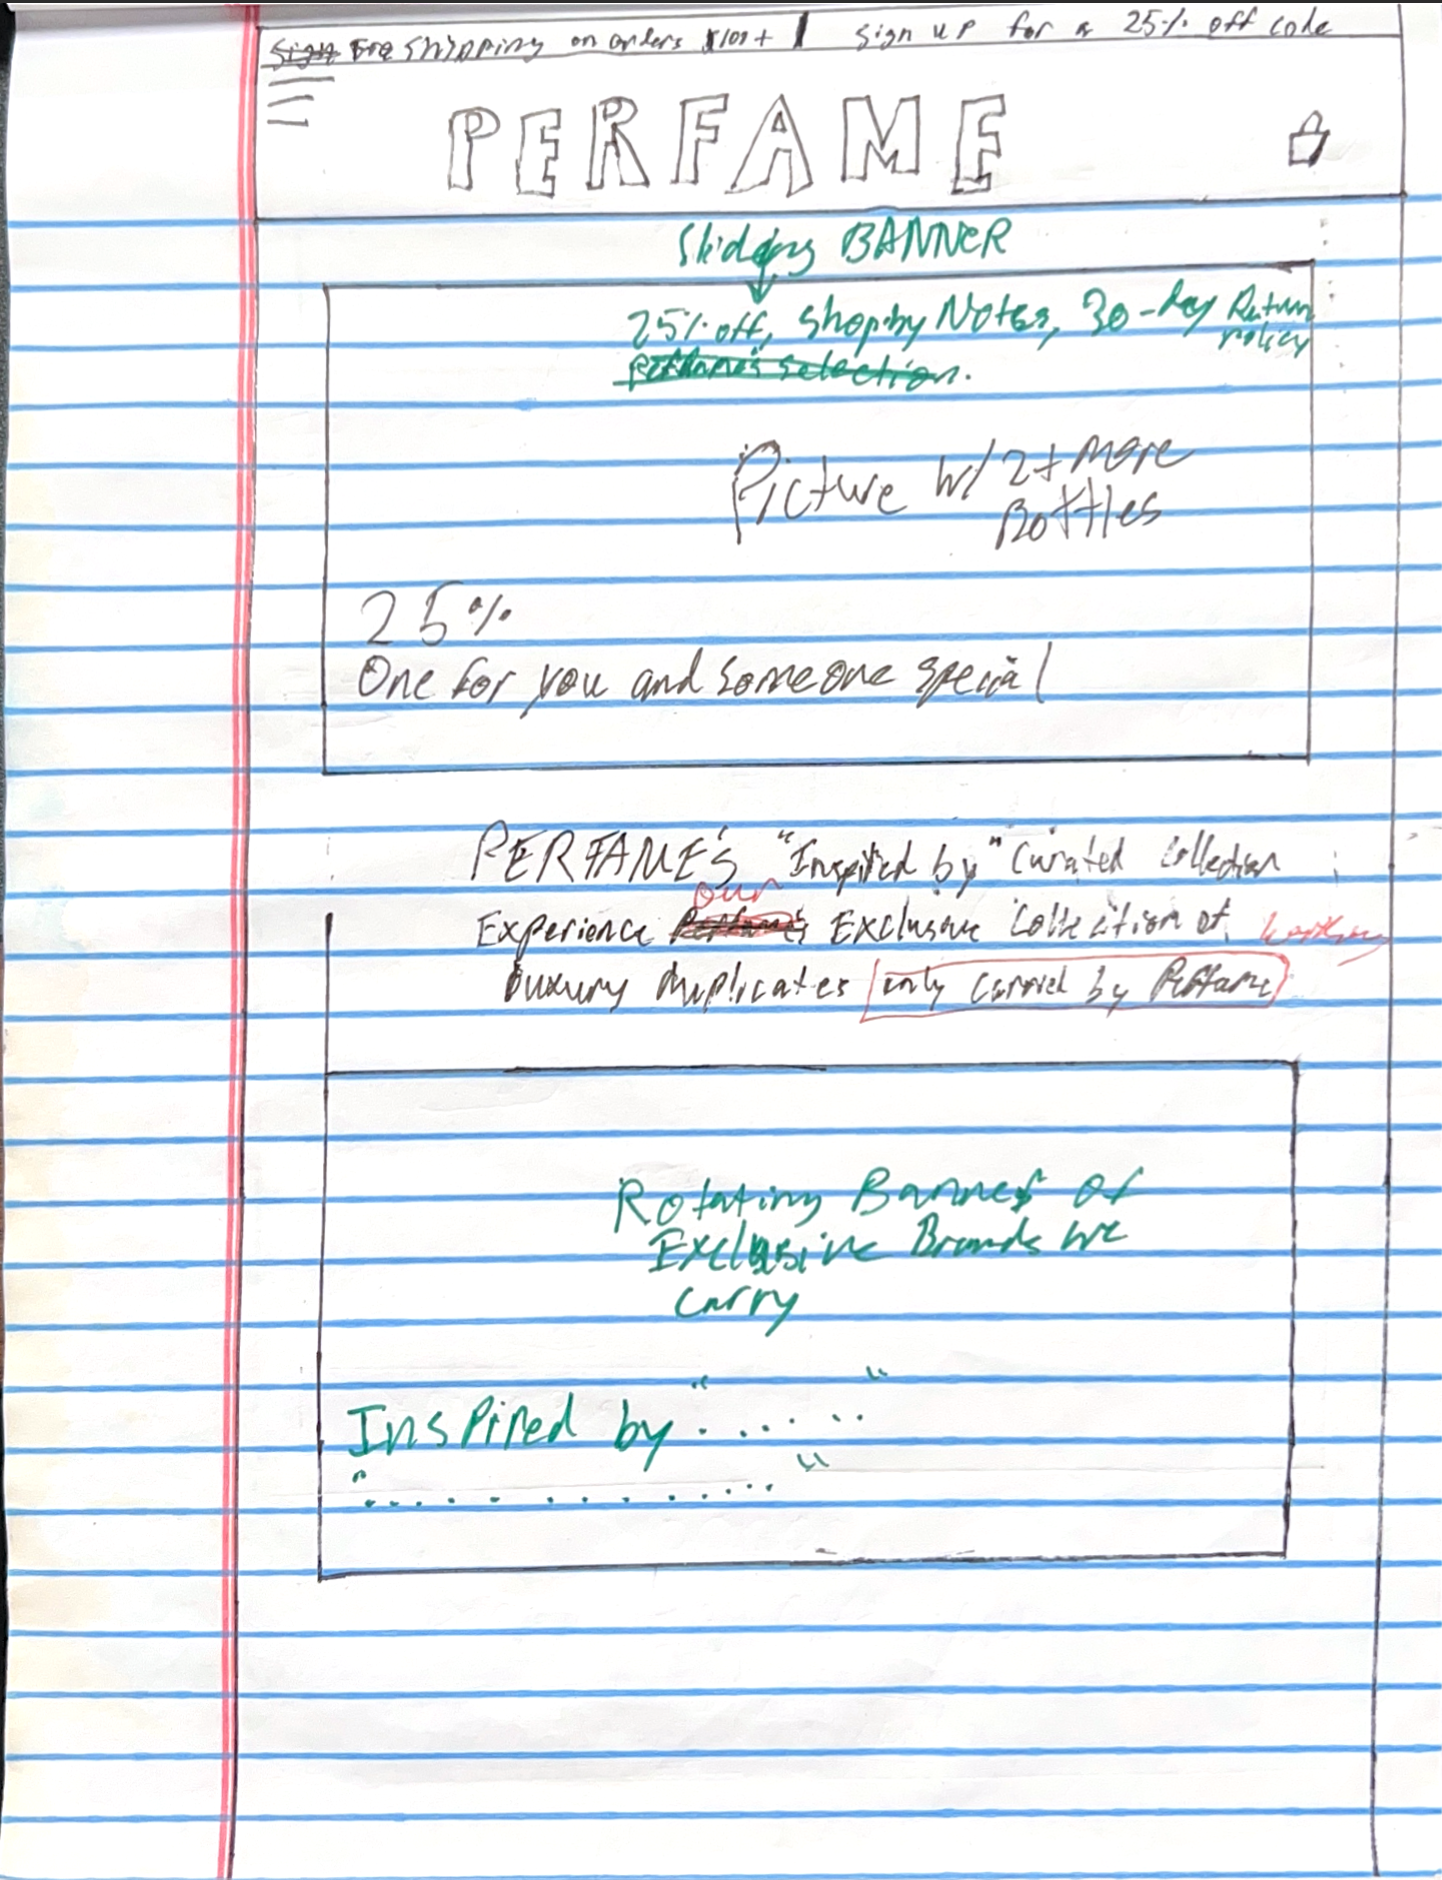 Free shipping on orders $100+ | Sign up for a 25% off code
PERFAME
Sliding BANNER
25% off, Shop by Notes, 30-day Return
Policy
Perfame's selection.
Picture w/ 2+ more
Bottles
25%
One for you and someone special
PERFAME'S "Inspired by" Curated Collection
our
Experience Perfame's Exclusive Collection of
Luxury duplicates only carried by Perfame
Rotating Banner of
Exclusive Brands we
carry
Inspired by "......"
"..............."